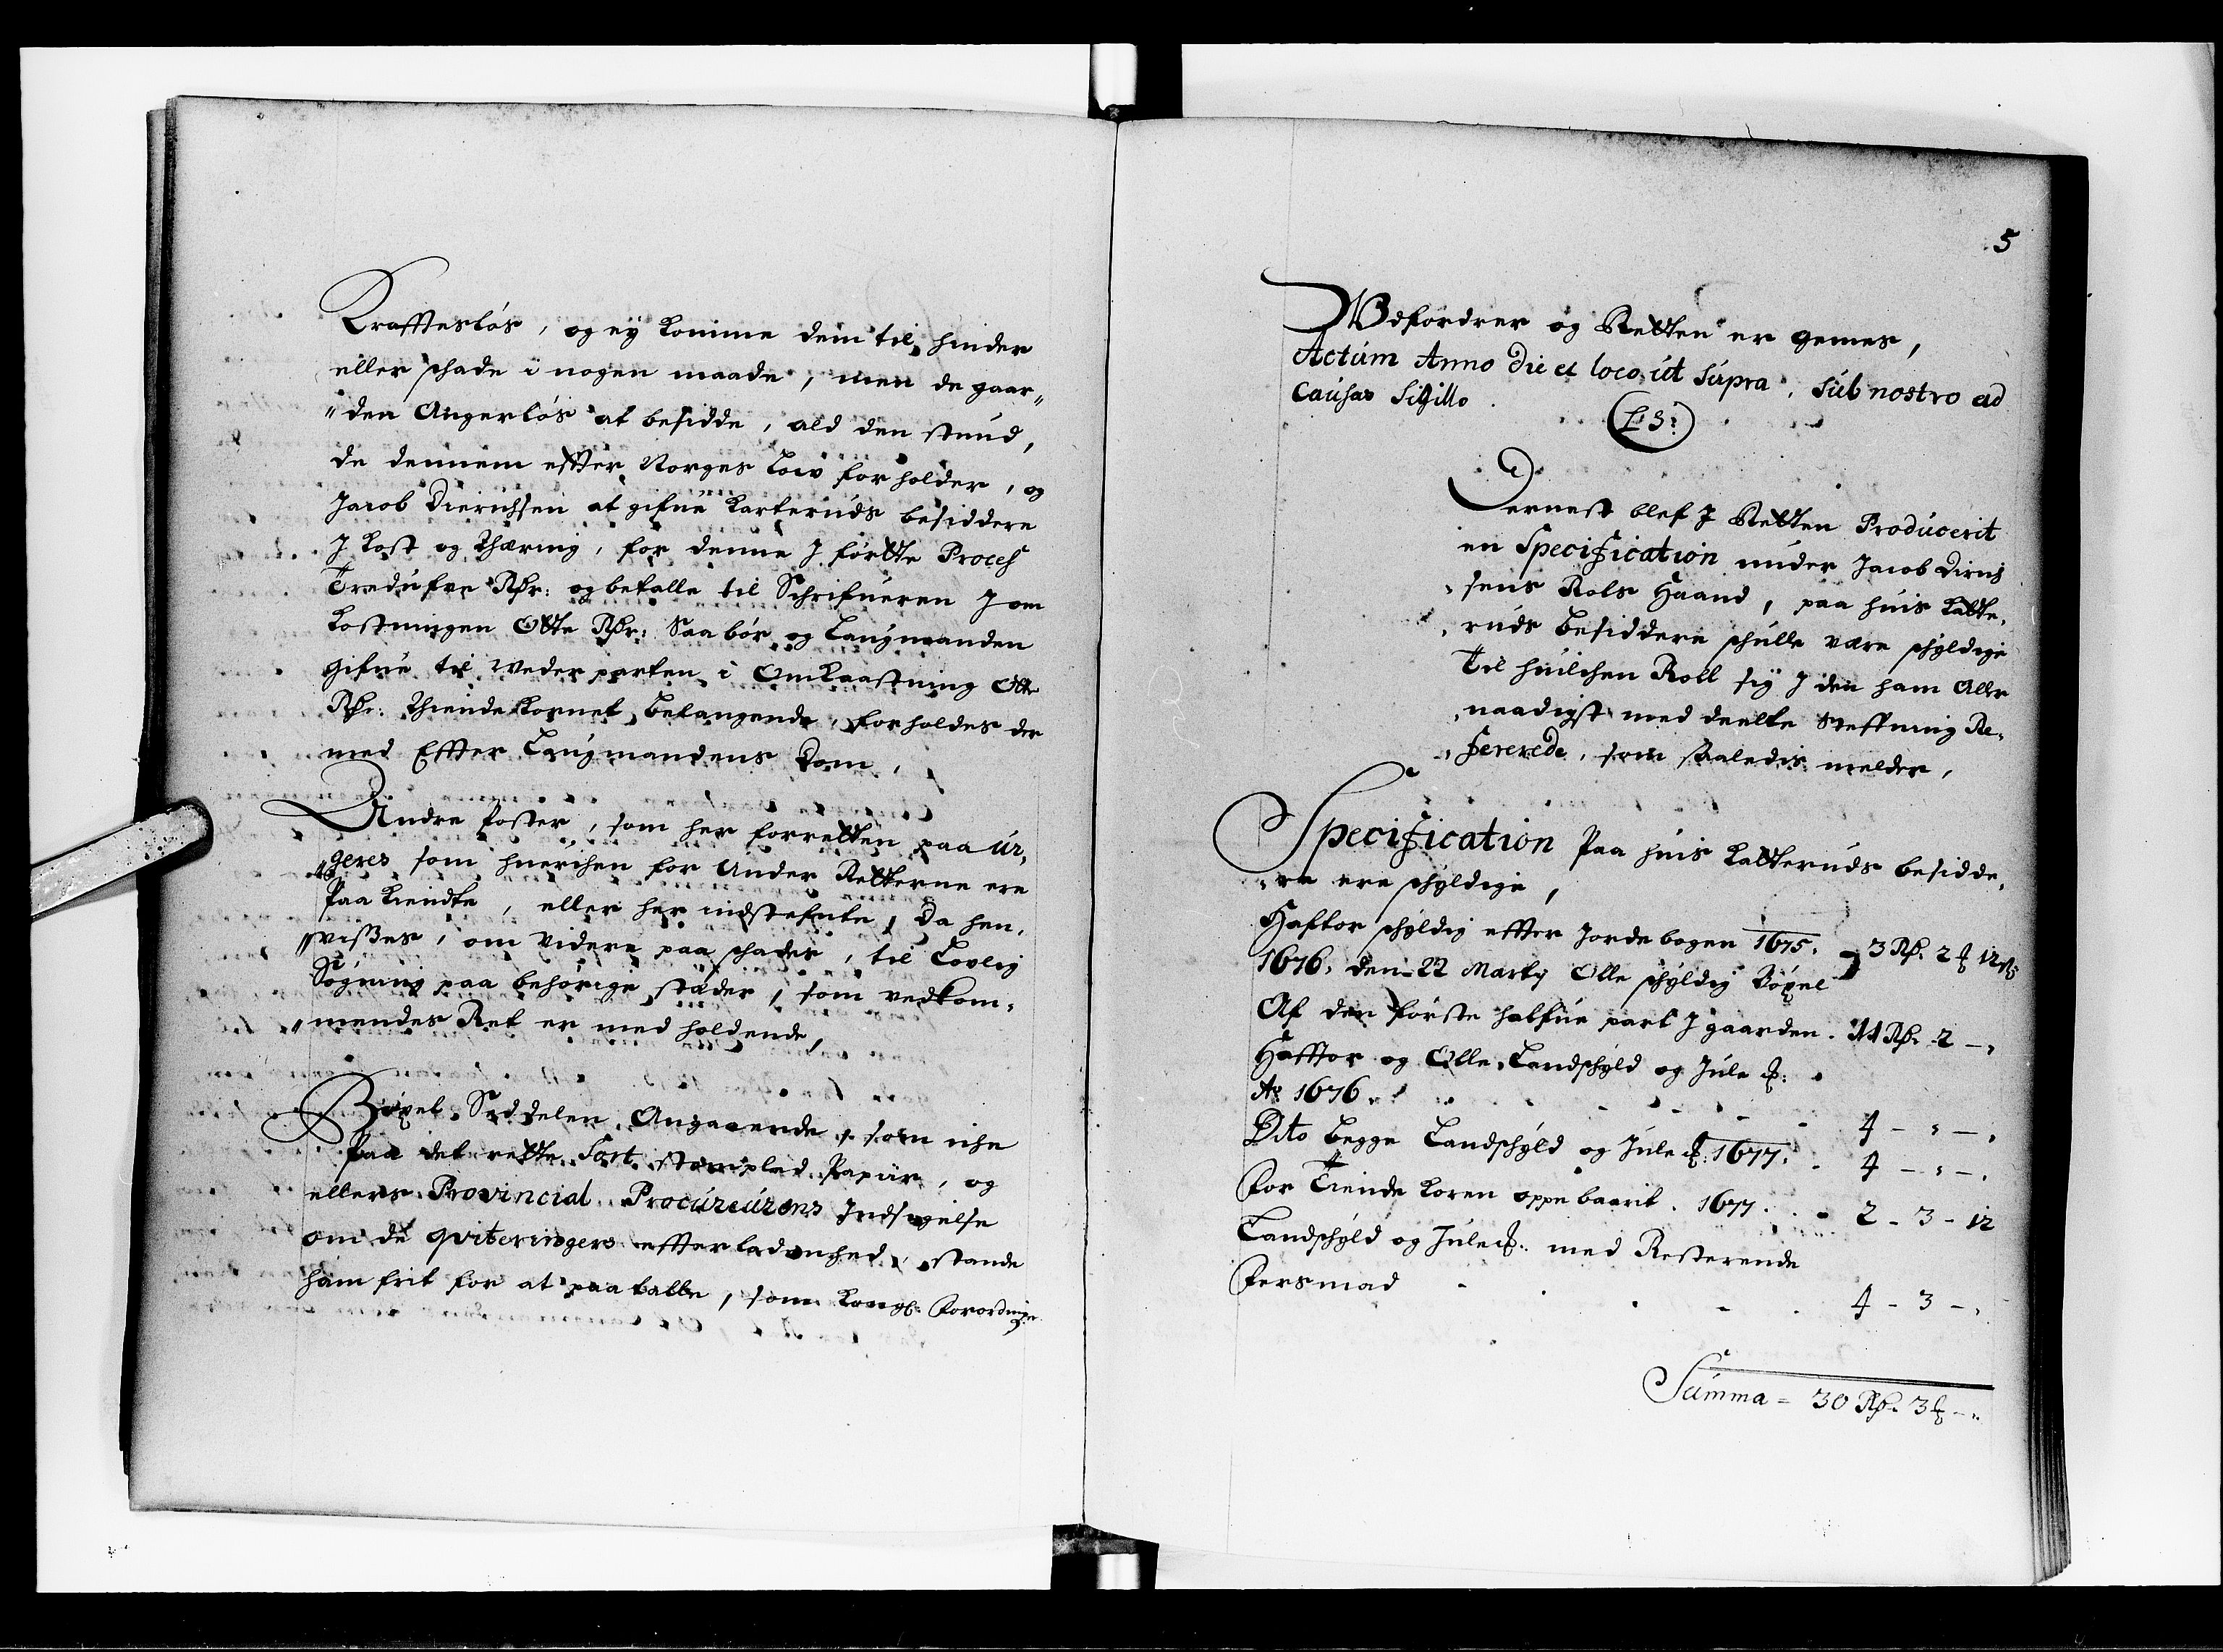 Krafftesløs, og ey komme dem til hinder
eller schade i nogen maade, men de gaar„
„den Angerløs at besidde, ald den stund,
de dennem effter Norges Low forholder, og
Jacob Dierichsen at gifue Karterúds besiddere
J kost og tæring, for denne J førte Process
Tredúfve Rdr: og betalle til Schrifúeren J om
kostningen Otte Rdr: Saa bør og Laugmanden
gifúe til weder parten i Omkaastning Otte
Rdr: Thiende Kornet belangende, forholdes der
med Effter Laugmandens Dom,
Andre Poster, som her forretten paa ús,
„geres som huerchen for Under Retterne ere
Paa kiendte, eller her indstefnte, Da hen,
„visses, om videre paa schades, til Lovlig
Søgning paa behørige stæder, som vedkom,
„mendes Ret er med holdende,
Bøxel Seddelen Angaaende, som iche
Paa det rette Sort stempled Papiir, og
ellers Provincial Procúreúrens Indsigelse
om de qviteringers efterladenhed, stande
ham frit for at paa talle, som Kongl: Forordninge
5
Udfordrer og Retten er gemes,
Actúm Anno die et loco út súpra, súb nostro ad
Caúsas Sigillo.
(L S:)
Dernest blef J Retten Prodúcerit
en Specification under Jacob Dirich
„sens Rols Haand, paa huis Katte,
„ruds besiddere schulle være schyldige
Til huilchen Roll sig J den ham Aller
„naadigst med deelte Steffning Re„
„fererede, som saaledis melder,
Specification Paa huis Katterúds besidde„
„re ere schyldige,
Haftor schyldig effter Jordebogen 1675.
1676. den 22 Marty Olle schyldig Bøxel } 3 Rdr. 2 ₰ 12 ß
Af den første halfúe part J gaarden. 11 Rdr. 2 - „
Hafftor og Olle, Landschyld og Jule ₰:
Ao 1676 . . . . . . 4 - „ - „
Dito begge Landschyld og Jule ₰: 1677. . 4 - „ - „
For Tiende Koren oppebaarit. 1677 . . . 2 - 3 - 12
Landschyld og Jule ₰. med Resterende
Forsmad . . . . . 4 - 3 - „
Súmma = 30 Rdr. 3 ₰ - „